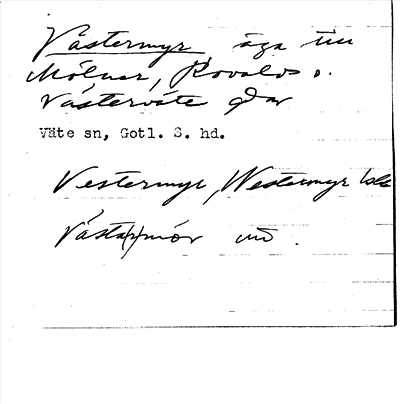 Västermyr, äga till
Mölner, Rovalds o.
Västerväte gdar
Väte sn, Gotl. S. hd.
Vestermyr, Westermyr
Västa(r)mör